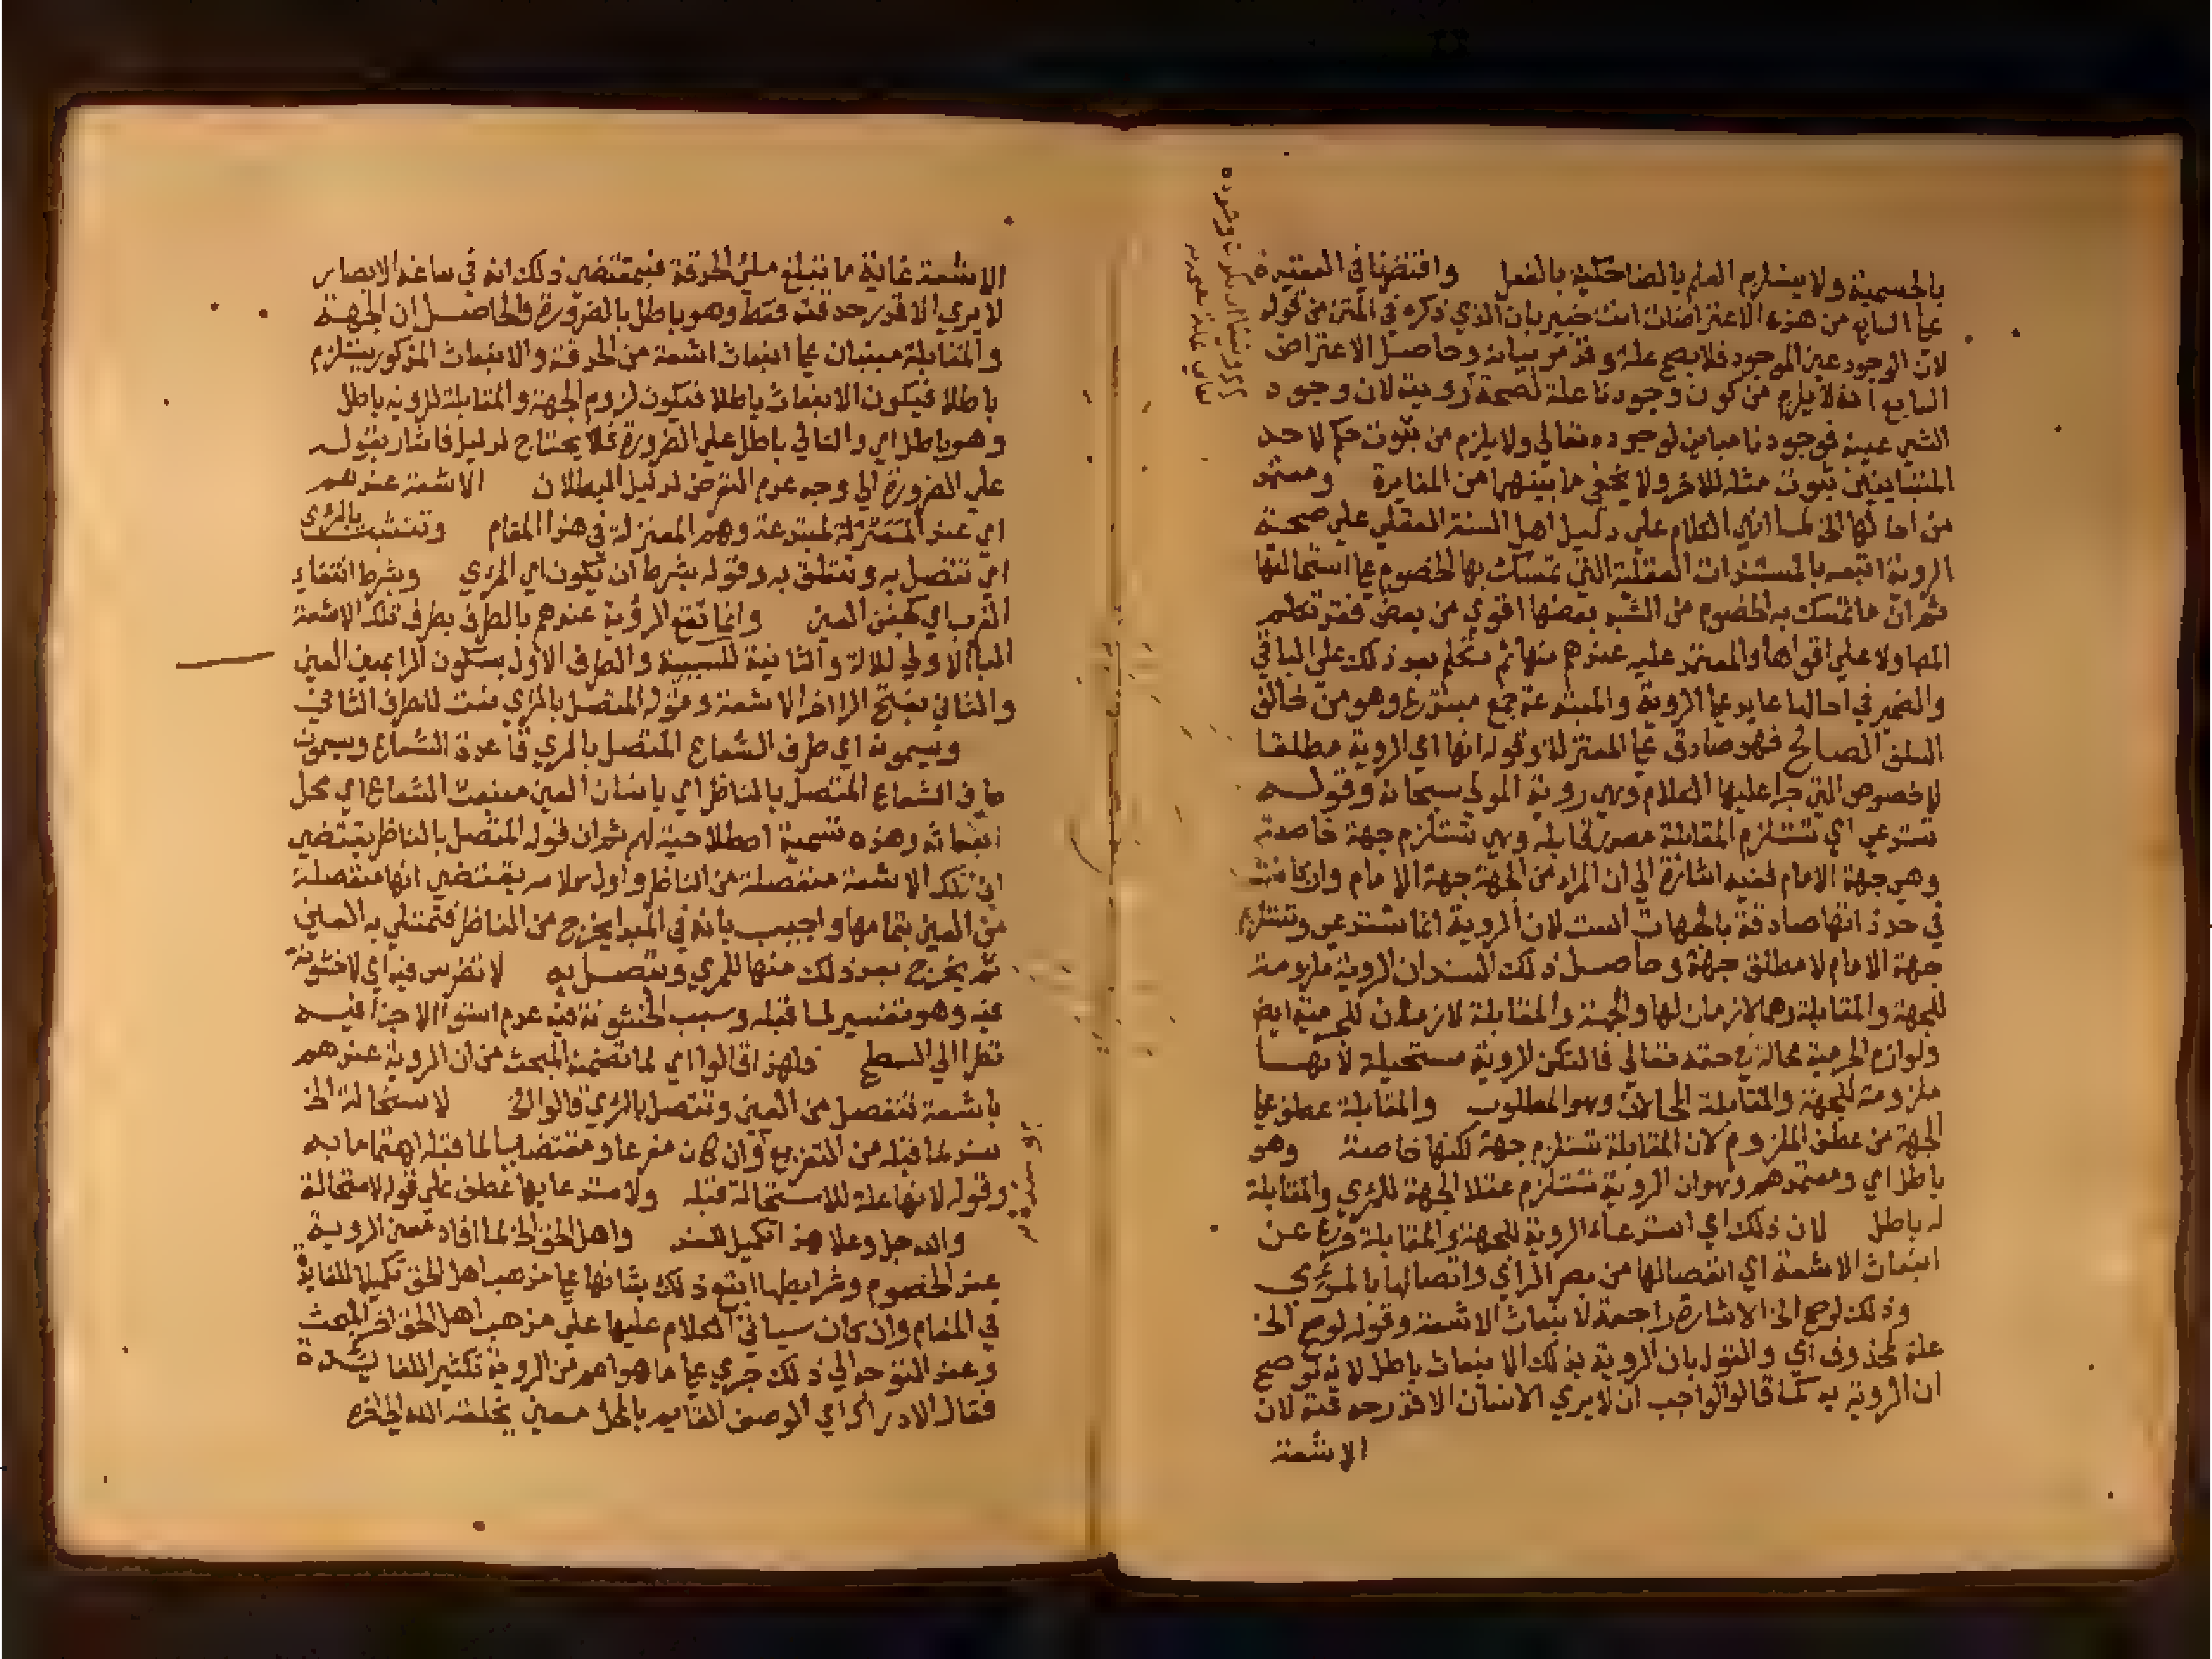 بالجسمية ولا يستلزم العلم بالضاحكية بالفعل واقتضابي العقيدة
علي السابع من هذه الاعتراضات انت خبير بان الذي ذكره في المتن من قوله
لان الوجود عين الموجود فلا يصح علة وقد مر بيانه وحاصل الاعتراض
السابع انه لا يلزم من كون وجودنا علة لصحة رؤيتنا لان وجود
الشي عينه فوجودنا مباين لوجوده تعالي ولا يلزم من ثبوت حكم لاحد
المتباينين ثبوت مثله للاخر ولا يخفي ما بينهما من المغايرة ومعتمد
من احالها الخ لما انهي الكلام علي دليل اهل السنة العقلي علي صحة
الروية اتبعه بالمستندات العقلية التي تمسك بها الخصوم علي استحالتها
ثم ان ما تمسك به الخصوم من الشبه بعضها اقوي من بعض فقد تكلم
المص اولا علي اقواها والمعتمد عليه عندهم منها ثم تكلم بعد ذلك علي الباقي
والضمير في احالها عايد علي الروية والمبتدعة جمع مبتدع وهو من خالف
السلف الصالح فهو صادق علي المعتزلة وقوله انها اي الروية مطلقا
لا خصوص التي جرا عليها الكلام وهي روية المولي سبحانه وقوله
تستدعي اي تستلزم المقابلة مصدر قابله وهي تستلزم جهة خاصة
وهي جهة الامام ففيه اشارة الي ان المراد من الجهة جهة الامام وان كانت
في حد ذاتها صادقة بالجهات الست لان الروية انما تستدعي وتستلزم
جهة الامام لا مطلق جهة وحاصل ذلك السند ان الروية ملزومة
للجهة والمقابلة وهما لازمان لها والجهة والمقابلة لازمان للجرمية ايض
ولوازم الجرمية محالة في حقه تعالي فالتكن الروية مستحيلة لانها
ملزومة للجهة والمقابلة المحالان وهو المطلوب والمقابلة عطف علي
الجهة من عطف الملزوم لان المقابلة تستلزم جهة لكنها خاصة وهو
باطل اي ومعتمدهم وهو ان الروية تستلزم عقلا الجهة للمرئي والمقابلة
له باطل لان ذلك اي استدعاء الروية للجهة والمقابلة فرع عن
انبعاث الاشعة اي انفصالها من بصر الرائي واتصالها بالمرئي
وذلك لوصح الخ الاشارة راجعة لانبعاث الاشعة وقوله لوصح الخ
علة لمحذوف اي والقول بان الروية بذلك الانبعاث باطل لانه لو صح
ان الروية به كما قالوا لواجب ان لا يري الانسان الا قدر حدقته لان
الاشعة
الاشعة غاية ما تبلغ ملئ الحدقة فبمقتضي ذلك انه في ساعة الابصار
لا يري الا قدر حدقته فقط وهو باطل بالضرورة والحاصل ان الجهة
والمقابلة مبنيان علي انبعاث اشعة من الحدقة والانبعاث المذكور يستلزم
باطلا فيكون الانبعاث باطلا فيكون لزوم الجهة والمقابلة للروية باطل
وهو باطل اي والتالي باطل علي الضرورة فلا يحتاج لدليل فاشار بقوله
علي الضرورة الي وجه عدم التعرض لدليل البطلان الاشعة عندهم
اي عند المعتزلة المبتدعة وهم المعتزلة في هذا المقام وتتشبث بالمرئي
اي تتصل به وتتعلق به وقوله بشرط ان يكون اي المرئي وبشرط انتفاء
القرب اي كجفن العين وانما تقع الرؤية عندهم بالطرف بطرف تلك الاشعة
الباء الاولي للالة والثانية للسببية والطرف الاول بسكون الرا بمعني العين
والثاني بفتح الرا اخر الاشعة وقوله المتصل بالمرئي نعت للطرف الثاني
ويسمونه اي طرف الشعاع المتصل بالمرئي قاعدة الشعاع ويسمون
طرف الشعاع المتصل بالناظر اي بانسان العين منبعث الشعاع اي محل
انبعاثه وهذه تسمية اصطلاحية لهم ثم ان قوله المتصل بالناظر يقتضي
ان تلك الاشعة منفصلة من الناظر واول كلامه يقتضي انها منفصلة
من العين بتمامها واجيب بانه في المبدا يخرج من الناظر فتمتلي به العين
ثم يخرج بعد ذلك منها للمرئي ويتصل به لا تضرس فيه اي لا خشونة
فيه وهو تفسير لما قبله وسبب الخشونة فيه عدم استوا الاجزا فيه
نظرا الي السطح فلهذا قالوا اي لما تضمنه المبحث من ان الروية عندهم
باشعة تنفصل من العين وتتصل بالمرئي قالوا الخ لاستحالة الخ
سند لما قبله من التفريع وان كان مفرعا ومقتضبا لما قبله اهتماما به
وقوله لانها علة للاستحالة قبله ولا مستدعايها عطف علي قوله لاستحالة
والله جل وعلا هذا تكميل للسند واهل الحق الخ لما افاد معني الروية
عند الخصوم وشرايطها اتبع ذلك بشانها علي مذهب اهل الحق تكميلا للفايدة
في المقام وان كان سياتي الكلام عليها علي مذهب اهل الحق اخر المبحث
وعند التوجه الي ذلك جري علي ما هو اعم من الروية تكثير اللفايدة
فقال الادراك اي الوصف القايم بالمحل معني يخلقه الله الي اخره